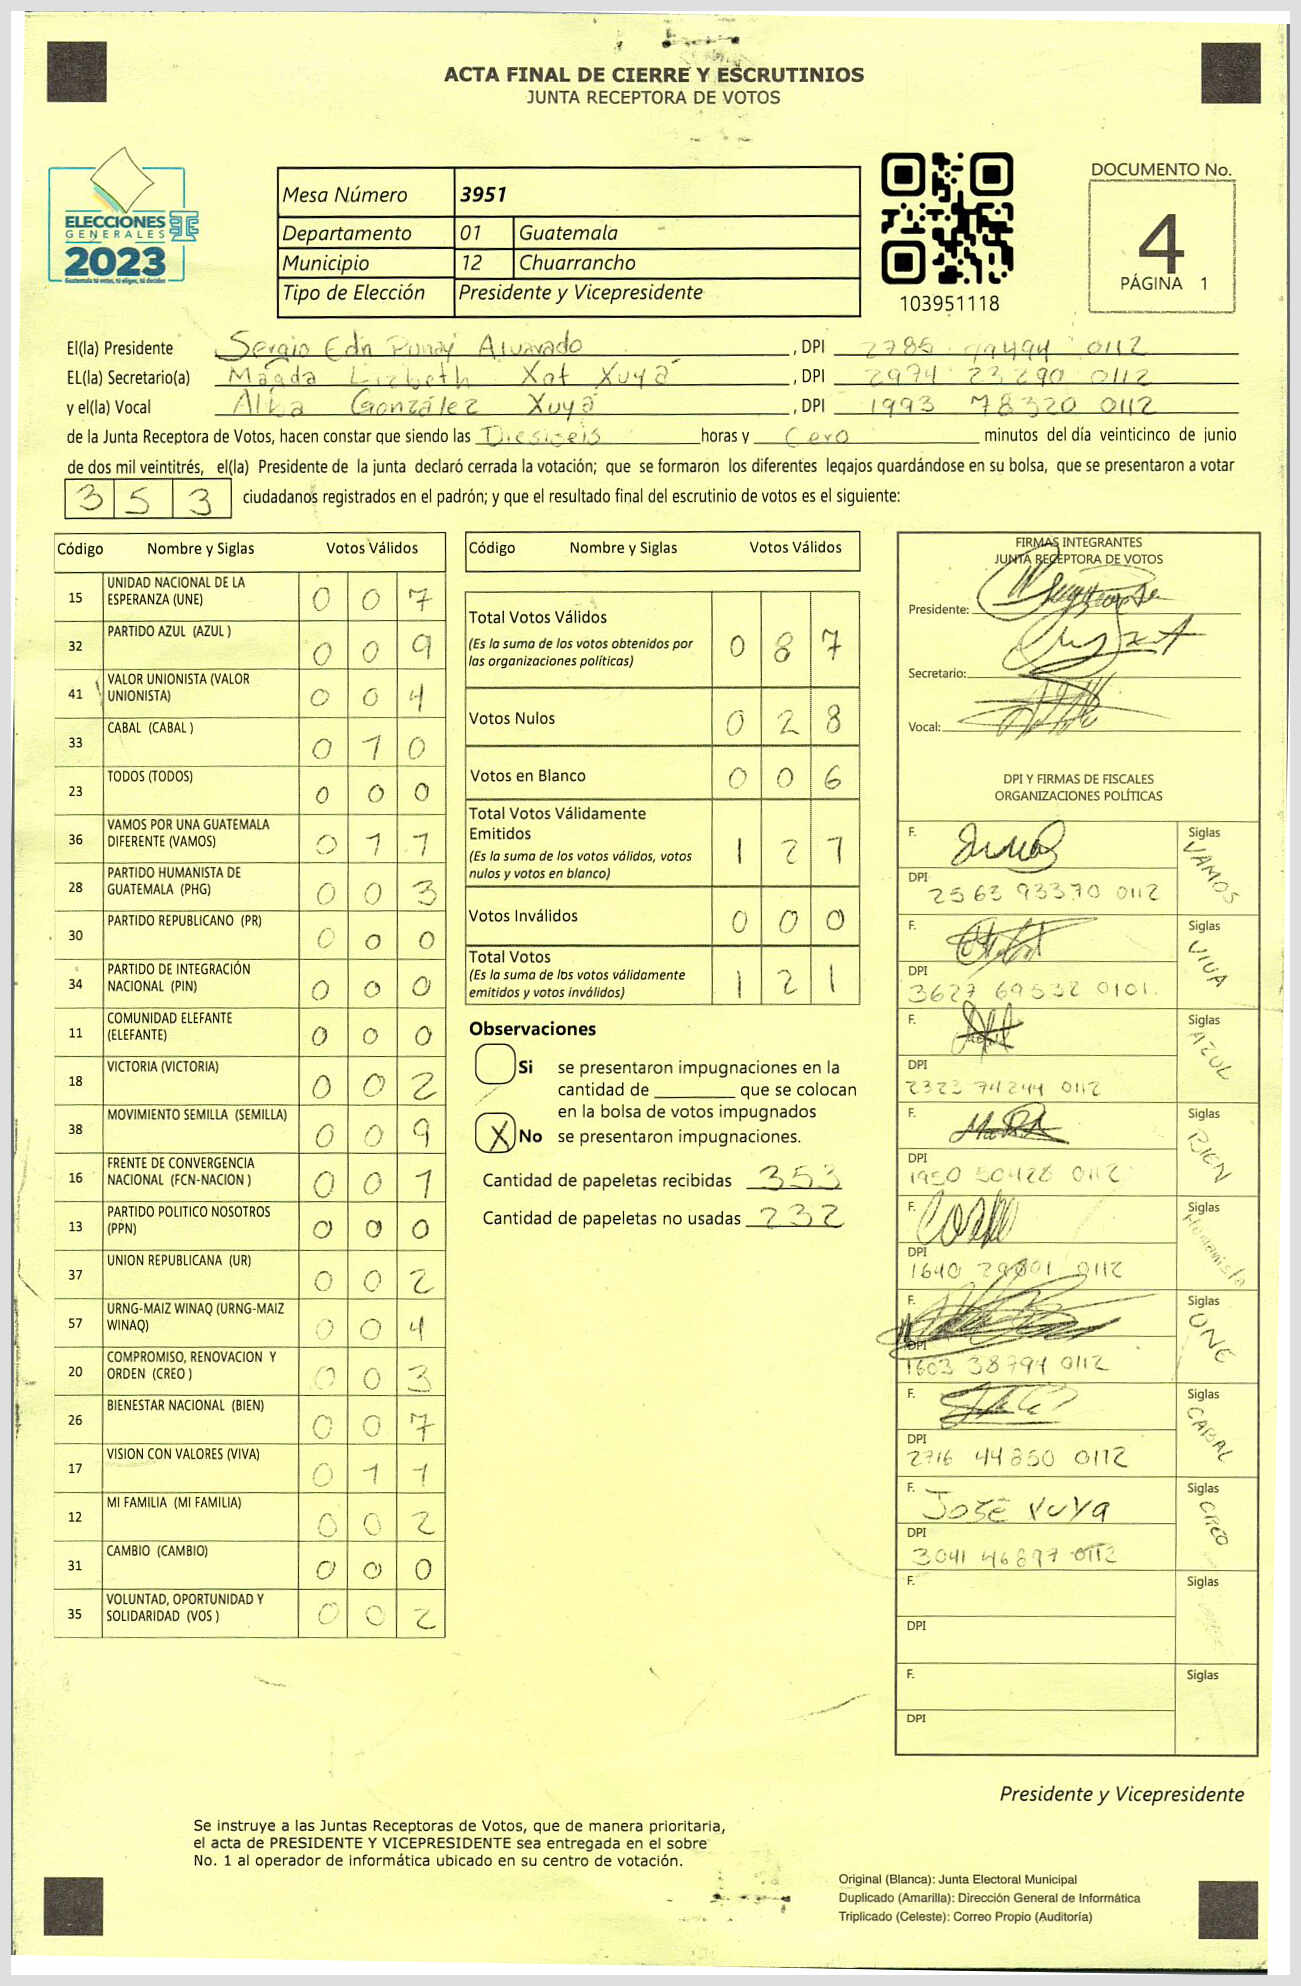 ACTA FINAL DE CIERRE Y ESCRUTINIOS
JUNTA RECEPTORA DE VOTOS
ELECCIONES
GENERALES
2023
Guatemala tú votas, tú eliges, tú decides
Mesa Número 3951
Departamento 01 Guatemala
Municipio 12 Chuarrancho
Tipo de Elección Presidente y Vicepresidente
103951118
DOCUMENTO No.
4
PÁGINA 1
El(la) Presidente Sergio Edn Alvarado , DPI 2785 99494 0112
EL(la) Secretario(a) Magda Lizbeth Xot Xuyá , DPI 2974 23290 0112
y el(la) Vocal Alba González Xuyá , DPI 1993 78320 0112
de la Junta Receptora de Votos, hacen constar que siendo las Diesiseis horas y Cero minutos del día veinticinco de junio
de dos mil veintitrés, el(la) Presidente de la junta declaró cerrada la votación; que se formaron los diferentes legajos quardándose en su bolsa, que se presentaron a votar
353 ciudadanos registrados en el padrón; y que el resultado final del escrutinio de votos es el siguiente:
Código Nombre y Siglas Votos Válidos
15 UNIDAD NACIONAL DE LA ESPERANZA (UNE) 0 0 7
32 PARTIDO AZUL (AZUL ) 0 0 9
41 VALOR UNIONISTA (VALOR UNIONISTA) 0 0 4
33 CABAL (CABAL ) 0 1 0
23 TODOS (TODOS) 0 0 0
36 VAMOS POR UNA GUATEMALA DIFERENTE (VAMOS) 0 1 1
28 PARTIDO HUMANISTA DE GUATEMALA (PHG) 0 0 3
30 PARTIDO REPUBLICANO (PR) 0 0 0
34 PARTIDO DE INTEGRACIÓN NACIONAL (PIN) 0 0 0
11 COMUNIDAD ELEFANTE (ELEFANTE) 0 0 0
18 VICTORIA (VICTORIA) 0 0 2
38 MOVIMIENTO SEMILLA (SEMILLA) 0 0 9
16 FRENTE DE CONVERGENCIA NACIONAL (FCN-NACION ) 0 0 1
13 PARTIDO POLITICO NOSOTROS (PPN) 0 0 0
37 UNION REPUBLICANA (UR) 0 0 2
57 URNG-MAIZ WINAQ (URNG-MAIZ WINAQ) 0 0 4
20 COMPROMISO, RENOVACION Y ORDEN (CREO ) 0 0 3
26 BIENESTAR NACIONAL (BIEN) 0 0 7
17 VISION CON VALORES (VIVA) 0 1 1
12 MI FAMILIA (MI FAMILIA) 0 0 2
31 CAMBIO (CAMBIO) 0 0 0
35 VOLUNTAD, OPORTUNIDAD Y SOLIDARIDAD (VOS ) 0 0 2
Código Nombre y Siglas Votos Válidos
Total Votos Válidos 0 8 7
(Es la suma de los votos obtenidos por
las organizaciones políticas)
Votos Nulos 0 2 8
Votos en Blanco 0 0 6
Total Votos Válidamente
Emitidos 1 2 1
(Es la suma de los votos válidos, votos
nulos y votos en blanco)
Votos Inválidos 0 0 0
Total Votos 1 2 1
(Es la suma de los votos válidamente
emitidos y votos inválidos)
Observaciones
Si se presentaron impugnaciones en la
cantidad de ________ que se colocan
en la bolsa de votos impugnados
X No se presentaron impugnaciones.
Cantidad de papeletas recibidas 353
Cantidad de papeletas no usadas 232
FIRMAS INTEGRANTES
JUNTA RECEPTORA DE VOTOS
Presidente:
Secretario:
Vocal:
DPI Y FIRMAS DE FISCALES
ORGANIZACIONES POLÍTICAS
F. Siglas VAMOS
DPI 2563 93370 0112
F. Siglas VIVA
DPI 3627 69532 0101
F. Siglas AZUL
DPI 2323 74244 0112
F. Siglas BIEN
DPI 1950 50428 0112
F. Siglas Humanista
DPI 1640 29801 0112
F. Siglas UNE
DPI 1603 38794 0112
F. Siglas CABAL
DPI 2716 44850 0112
F. José Xuya Siglas CREO
DPI 3041 46897 0112
F. Siglas
DPI
F. Siglas
DPI
Presidente y Vicepresidente
Se instruye a las Juntas Receptoras de Votos, que de manera prioritaria,
el acta de PRESIDENTE Y VICEPRESIDENTE sea entregada en el sobre
No. 1 al operador de informática ubicado en su centro de votación.
Original (Blanca): Junta Electoral Municipal
Duplicado (Amarilla): Dirección General de Informática
Triplicado (Celeste): Correo Propio (Auditoría)